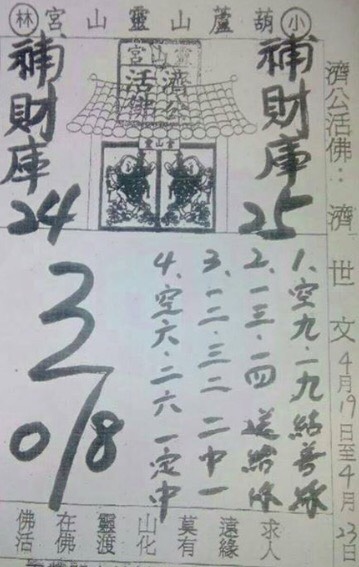 小葫蘆山靈山宮林
濟公活佛：濟世文 4月19日至4月23日
靈山宮
濟公
活佛
補財庫
25
補財庫
24
1、空九、一九結善緣
2、一三、一四送給你
3、一二、三二 二中一
4、空六、二六一定中
3
0/8
佛在靈山莫遠求
活佛渡化有緣人